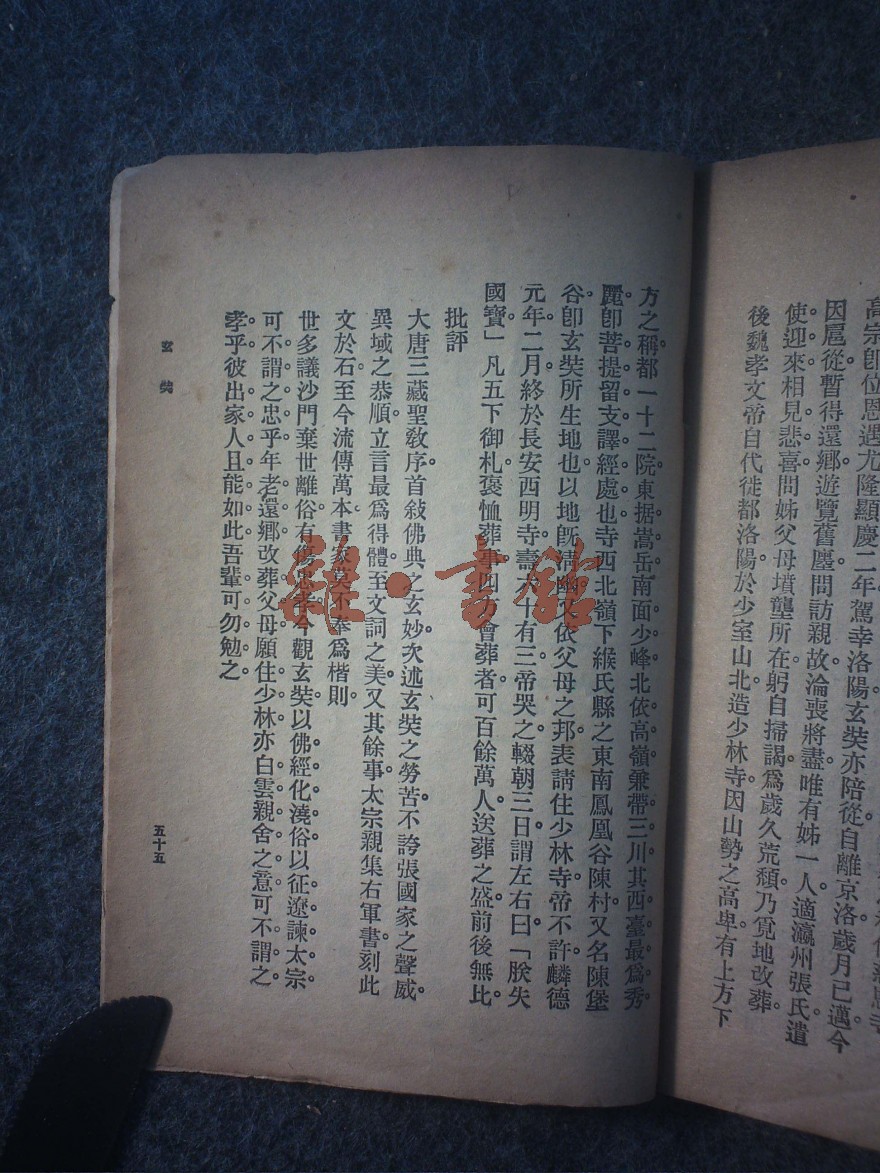 高宗卽位恩遇尤隆顯慶二年駕幸洛陽玄奘亦陪從自離京洛歲月已邁今
因扈從暫得還鄉遊覽舊廛問訪親故淪喪將盡唯有姊一人適瀛州張氏遣
使迎來相見悲喜問姊父母墳壟所在躬自掃謁爲歲久荒頹乃覓地改葬
後魏孝文帝自代徙都洛陽於少室山北造少林寺因山勢之高卑有上方下
方之稱都一十二院。東据嵩岳。南面少峰。北依高嶺。兼帶三川。其西臺最爲秀
麗。卽菩提留支譯經處也。寺西北嶺下緱氏縣之東南鳳凰谷陳村又名陳堡
谷卽玄奘所生地也以地旣清幽又依父母之邦表請住少林寺帝不許麟德
元年二月終於長安西明寺壽六十有三帝哭之輟朝三日謂左右曰「朕失
國寶」凡五下御札褒恤葬事四方會葬者可百餘萬人送葬之盛前後無比。
批評
大唐三藏聖敎序首敍佛典之玄妙。次述玄奘之勞苦。不誇張國家之聲威。
異域之恭順。立言最爲得體。至文詞之美。又其餘事。太宗親集右軍書刻此
文於石至今流傳萬本書家莫不奉爲楷則。
世多議沙門棄世離俗有傷忠孝今觀玄奘以佛經化澆俗以征遼諫太宗。
可不謂之忠乎。年老還鄉改葬父母願住少林亦白雲親舍之意可不謂之
孝乎。彼出家人且能如此。吾輩可勿勉之。
玄奘
五十五
雜·書館